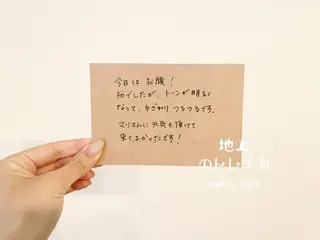 今日は お顔！
初でしたが、トーンが明るく
なって、手ざわり つるつるです。
マリさんに 元気も頂けて
来てよかったです！
地上